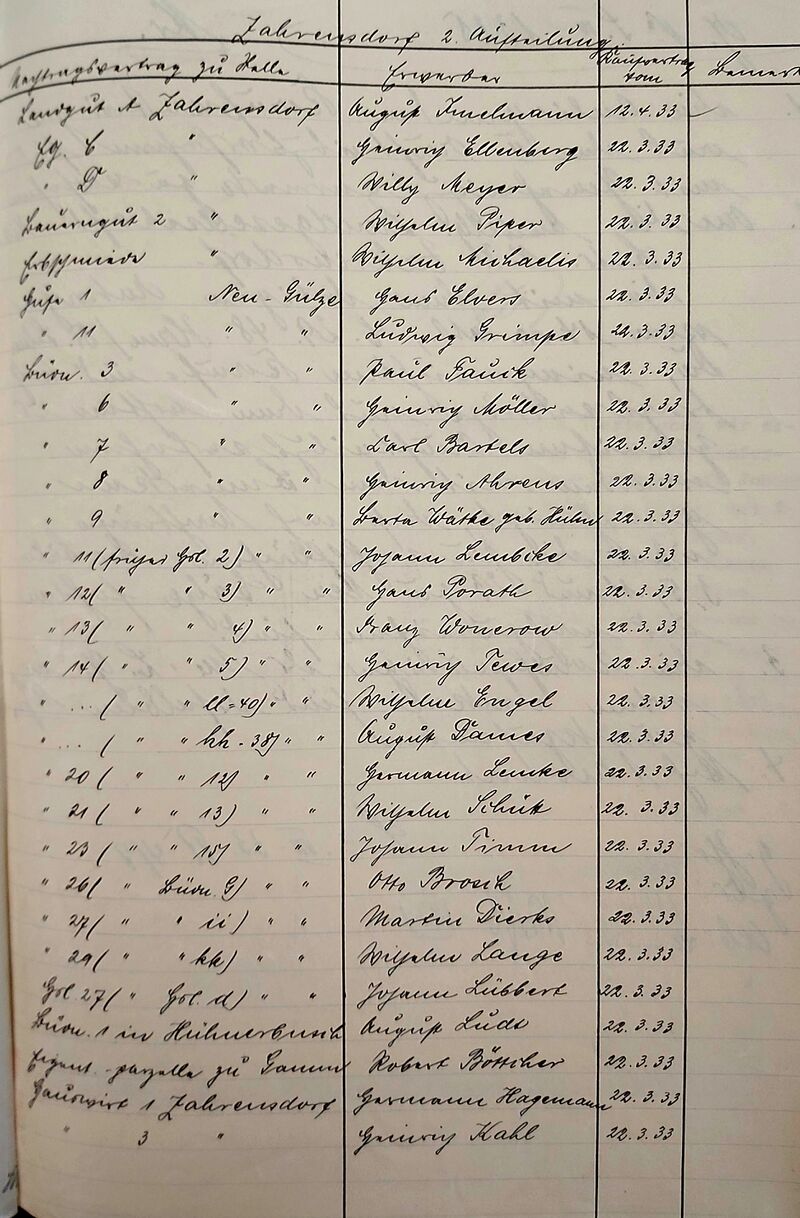 Zahrensdorf 2. Aufteilung.
Nachtragsvertrag zu Stelle Erwerber Kaufvertrag vom Bemerk
Landgut A Zahrensdorf August Imelmann 12.4.33
Eg. C " Heinrich Ellenberg 22.3.33
" D " Willy Meyer 22.3.33
Bauerngut 2 " Wilhelm Piper 22.3.33
Erbschmiede " Wilhelm Michaelis 22.3.33
Hufe 1 Neu-Gülze Hans Elvers 22.3.33
" 11 " " Ludwig Grimpe 22.3.33
Büdn. 3 " " Paul Fauck 22.3.33
" 6 " " Heinrich Möller 22.3.33
" 7 " " Carl Bartels 22.3.33
" 8 " " Heinrich Ahrens 22.3.33
" 9 " " Berta Wätke geb. Hühn 22.3.33
" 11 (früher Hsl. 2) " " Johann Lembcke 22.3.33
" 12 ( " " 3) " " Hans Porath 22.3.33
" 13 ( " " 4) " " Franz Wonerow 22.3.33
" 14 ( " " 5) " " Heinrich Tewes 22.3.33
" ... ( " " ll = 40) " " Wilhelm Engel 22.3.33
" ... ( " " hh - 38) " " August Dames 22.3.33
" 20 ( " " 12) " " Hermann Lemke 22.3.33
" 21 ( " " 13) " " Wilhelm Schütt 22.3.33
" 23 ( " " 15) " " Johann Timm 22.3.33
" 26 ( " Büdn. G) " " Otto Brosch 22.3.33
" 27 ( " " ii) " " Martin Dierks 22.3.33
" 29 ( " " kk) " " Wilhelm Lange 22.3.33
Hsl. 27 ( " Hsl. d) " " Johann Lübbert 22.3.33
Büdn. 1 in Hühnerbusch August Ludt 22.3.33
Eigent.-parzelle zu Gamm Robert Böttcher 22.3.33
Hauswirt 1 Zahrensdorf Hermann Hagemann 22.3.33
" 3 " Heinrich Kahl 22.3.33